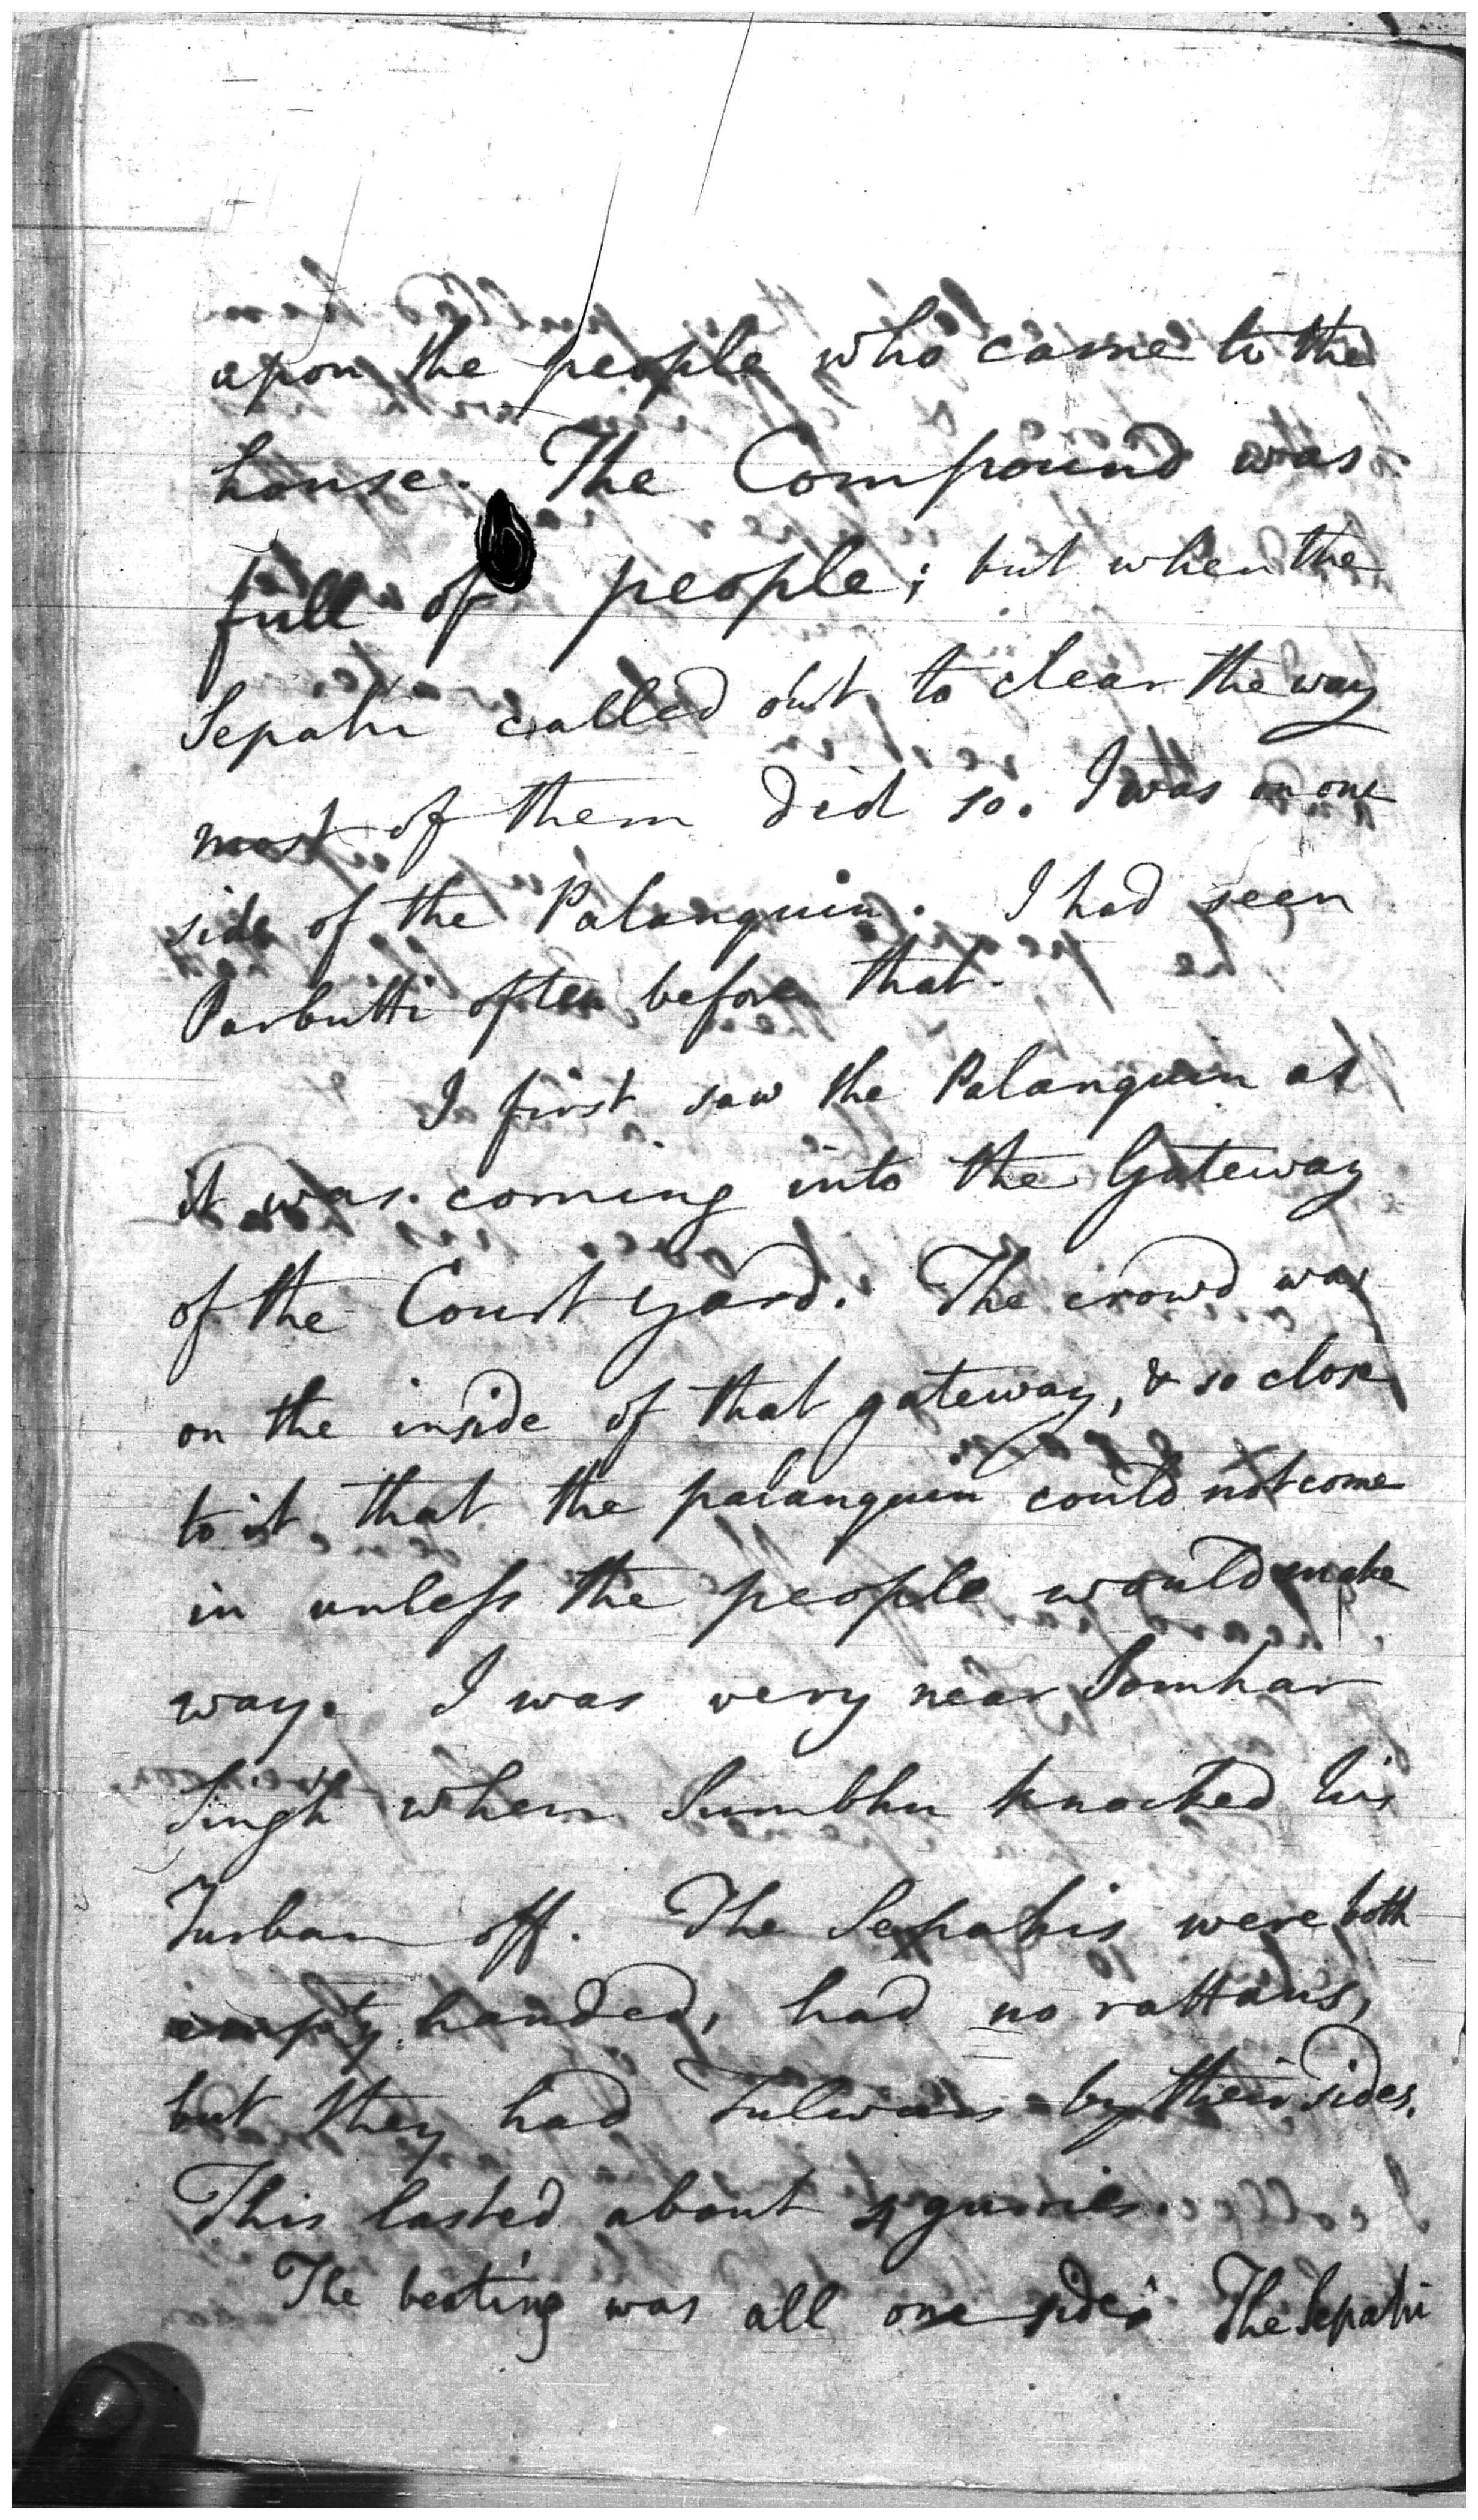 upon the people who came to the
house. The Compound was
full of people; but when the
Sepahi called out to clear the way
most of them did so. I was on one
side of the Palanquin. I had seen
Parbutti often before that.
I first saw the Palanquin as
it was coming into the Gateway
of the Court yard. The crowd was
on the inside of that gateway, & so close
to it, that the palanquin could not come
in unless the people would make
way. I was very near Somhar
Singh when Sumbhu knocked his
Turban off. The Sepahis were both
empty handed, had no rattans,
but they had Tulwars by their sides.
This lasted about 4 gurries.
The beating was all one side. The Sepahi